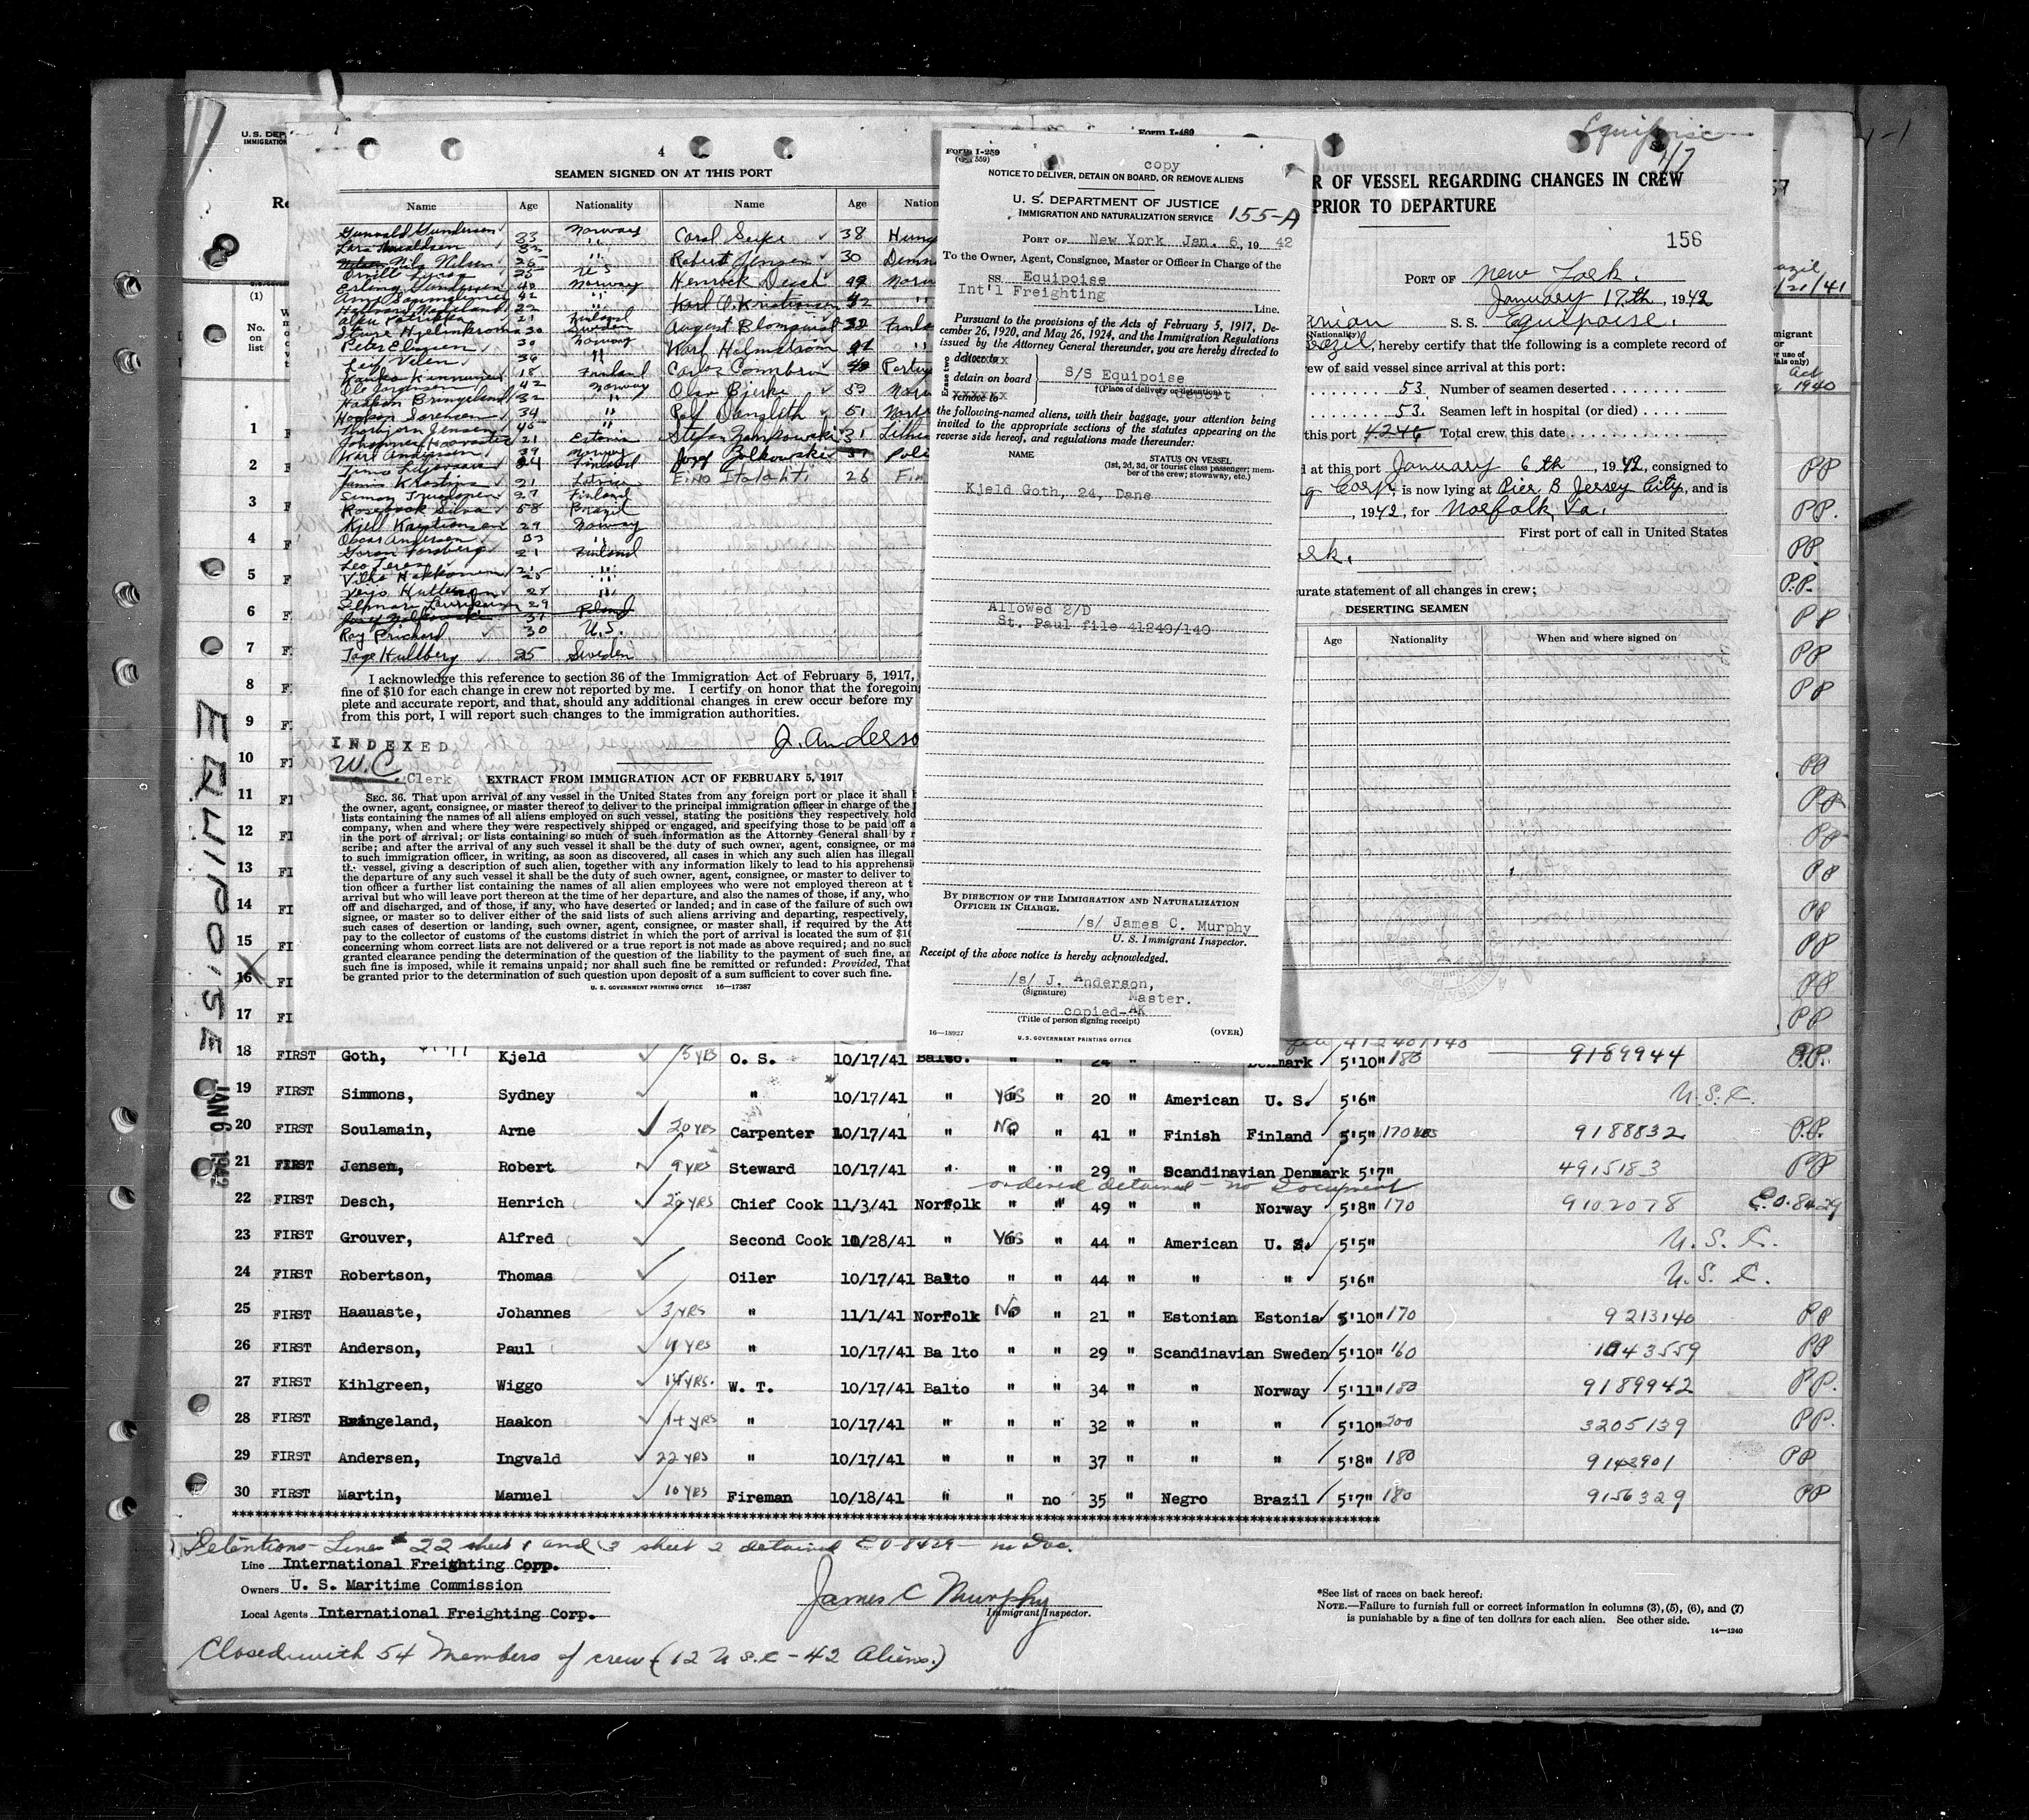 U.S. DEP
IMMIGRATION
4
SEAMEN SIGNED ON AT THIS PORT
Name Age Nationality Name Age Nation
Gunvald Gundersen 33 Norway
Carol 38 Hung
Robert Jensen 30 Denm
Nils Nilsen 26
Orvill 25 U S
Henrick Desch 49 Norw
Erling Gundersen 40 Norway
Karl O. Kristiansen 42 "
August Blomquist 32 Finla
Peter Elgesen 30 Norway
Karl Holmstrom
Leif Velen 36 "
18 Finland
Carlos Portug
42 Norway
Olav Bjerke 52 Norw
Haakon Bringeland 32 "
Haakon Sorensen 34 "
51 North
Thorbjorn Jensen 45 "
Johannes 21 Estonia
Stefan Zamkowski 31 Lithu
Karl Andersen 39 Norway
Jozef Polkowski Poli
24 Finland
Eino 26 Fin
Janis Krastins 21 Latvia
Simon 27 Finland
Silva 58 Brazil
Kjell Kristiansen 29 Norway
Oscar Anderson 33 "
Goran Forsberg 21 Finland
Leo 21 "
Vilho Hakkonen 25 "
29
31 Poland
Ray Prichard 30 U.S.
Tage Hullberg 25 Sweden
I acknowledge this reference to section 36 of the Immigration Act of February 5, 1917,
fine of $10 for each change in crew not reported by me. I certify on honor that the foregoin
plete and accurate report, and that, should any additional changes in crew occur before my
from this port, I will report such changes to the immigration authorities.
INDEXED
W.C. Clerk
J. Anderso
EXTRACT FROM IMMIGRATION ACT OF FEBRUARY 5, 1917
SEC. 36. That upon arrival of any vessel in the United States from any foreign port or place it shall
the owner, agent, consignee, or master thereof to deliver to the principal immigration officer in charge of the
lists containing the names of all aliens employed on such vessel, stating the positions they respectively hold
company, when and where they were respectively shipped or engaged, and specifying those to be paid off a
in the port of arrival; or lists containing so much of such information as the Attorney General shall by
scribe; and after the arrival of any such vessel it shall be the duty of such owner, agent, consignee, or ma
to such immigration officer, in writing, as soon as discovered, all cases in which any such alien has illegall
the vessel, giving a description of such alien, together with any information likely to lead to his apprehensi
the departure of any such vessel it shall be the duty of such owner, agent, consignee, or master to deliver to
tion officer a further list containing the names of all alien employees who were not employed thereon at t
arrival but who will leave port thereon at the time of her departure, and also the names of those, if any, who
off and discharged, and of those, if any, who have deserted or landed; and in case of the failure of such own
signee, or master so to deliver either of the said lists of such aliens arriving and departing, respectively,
such cases of desertion or landing, such owner, agent, consignee, or master shall, if required by the Att
pay to the collector of customs of the customs district in which the port of arrival is located the sum of $1
concerning whom correct lists are not delivered or a true report is not made as above required; and no such
granted clearance pending the determination of the question of the liability to the payment of such fine, an
such fine is imposed, while it remains unpaid; nor shall such fine be remitted or refunded: Provided, That
be granted prior to the determination of such question upon deposit of a sum sufficient to cover such fine.
U. S. GOVERNMENT PRINTING OFFICE 16—17387
FORM I-259
copy
NOTICE TO DELIVER, DETAIN ON BOARD, OR REMOVE ALIENS
U. S. DEPARTMENT OF JUSTICE
IMMIGRATION AND NATURALIZATION SERVICE
155-A
PORT OF New York Jan. 6, 19 42
To the Owner, Agent, Consignee, Master or Officer in Charge of the
SS Equipoise
Int'l Freighting Line.
Pursuant to the provisions of the Acts of February 5, 1917, De-
cember 26, 1920, and May 26, 1924, and the Immigration Regulations
issued by the Attorney General thereunder, you are hereby directed to
Erase two
deliver to
detain on board
remove to
S/S Equipoise
(Place of delivery or detention)
the following-named aliens, with their baggage, your attention being
invited to the appropriate sections of the statutes appearing on the
reverse side hereof, and regulations made thereunder:
NAME STATUS ON VESSEL
(1st, 2d, 3d, or tourist class passenger; mem-
ber of the crew; stowaway, etc.)
Kjeld Goth, 24, Dane
Allowed 2/D
St. Paul file 41240/140
BY DIRECTION OF THE IMMIGRATION AND NATURALIZATION
OFFICER IN CHARGE.
/s/ James C. Murphy
U. S. Immigrant Inspector.
Receipt of the above notice is hereby acknowledged.
/s/ J. Anderson,
(Signature)
Master.
copied-AK
(Title of person signing receipt)
16—18927 (OVER)
U. S. GOVERNMENT PRINTING OFFICE
Form I-489
Equipoise
47
R OF VESSEL REGARDING CHANGES IN CREW
PRIOR TO DEPARTURE
156
PORT OF New York.
January 17th, 1942
anian S. S. Equipoise.
(Nationality)
Brazil, hereby certify that the following is a complete record of
ew of said vessel since arrival at this port:
53 Number of seamen deserted
53. Seamen left in hospital (or died)
this port 4246 Total crew this date
d at this port January 6th, 1942, consigned to
g Corp, is now lying at Pier B Jersey City, and is
, 1942, for Norfolk, Va.
First port of call in United States
ork.
urate statement of all changes in crew;
DESERTING SEAMEN
Age Nationality When and where signed on
/21/41
1940
(1)
No. on list
1
2
3
4
5
6
7
8
9
10
11
12
13
14
15
16
17
EQUIPOISE
JAN 6 1942
18 FIRST Goth, Kjeld 15 YRS O. S. 10/17/41 Balto. " " 24 " " Denmark 5'10" 180 9189944 P.P.
19 FIRST Simmons, Sydney " 10/17/41 " Yes " 20 " American U. S. 5'6" U.S.C.
20 FIRST Soulamain, Arne 20 YRS Carpenter 10/17/41 " No " 41 " Finish Finland 5'5" 170 9188832 P.P.
21 FIRST Jensen, Robert 9 YRS Steward 10/17/41 " " " 29 " Scandinavian Denmark 5'7" 4915183 PP
ordered detained - no Document
22 FIRST Desch, Henrich 20 YRS Chief Cook 11/3/41 Norfolk " " 49 " " Norway 5'8" 170 9102078 E.O. 8429
23 FIRST Grouver, Alfred Second Cook 10/28/41 " Yes " 44 " American U. S. 5'5" U.S.C.
24 FIRST Robertson, Thomas Oiler 10/17/41 Balto " " 44 " " " 5'6" U.S.C.
25 FIRST Haauaste, Johannes 3 YRS " 11/1/41 Norfolk No " 21 " Estonian Estonia 5'10" 170 9213140 PP
26 FIRST Anderson, Paul 4 YRS " 10/17/41 Ba lto " " 29 " Scandinavian Sweden 5'10" 160 1043559 PP
27 FIRST Kihlgreen, Wiggo 14 YRS. W. T. 10/17/41 Balto " " 34 " " Norway 5'11" 180 9189942 PP.
28 FIRST Bringeland, Haakon 14 YRS " 10/17/41 " " " 32 " " " 5'10" 200 3205139 PP.
29 FIRST Andersen, Ingvald 22 YRS " 10/17/41 " " " 37 " " " 5'8" 180 9142901 PP
30 FIRST Martin, Manuel 10 YRS Fireman 10/18/41 " " no 35 " Negro Brazil 5'7" 180 9156329 PP
Detentions - Lines #22 sheet 1 and 3 sheet 2 detained EO-8429 - no Doc.
Line International Freighting Corp.
Owners U. S. Maritime Commission
Local Agents International Freighting Corp.
James C Murphy
Immigrant Inspector.
*See list of races on back hereof.
NOTE.—Failure to furnish full or correct information in columns (3), (5), (6), and (7)
is punishable by a fine of ten dollars for each alien. See other side.
14—1240
Closed with 54 Members of crew (12 U S.C - 42 Aliens.)